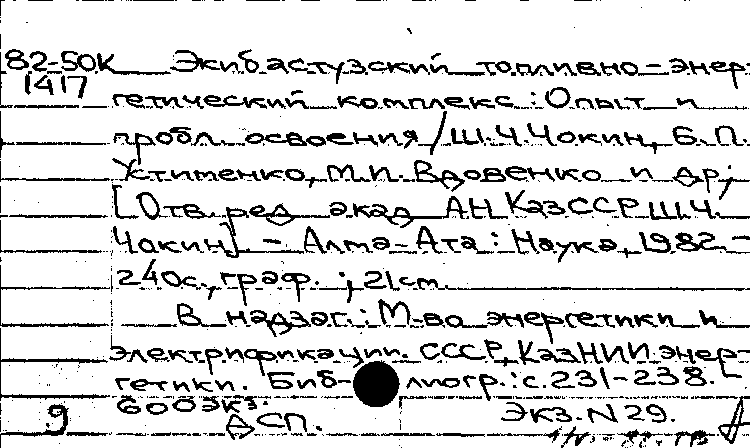 82-50К Экибастузский топливно-энер-
1417
гетический комплекс: Опыт и
пробл. освоения / Ш.Ч. Чокин, Б.П.
Устименко, М.П. Вдовенко и др.;
[Отв. ред. акад. АН КазССР Ш.Ч.
Чокин]. - Алма-Ата: Наука, 1982. -
240с., граф.; 21см.
В надзаг.: М-во энергетики и
электрификации. СССР, КазНИИ энер-
гетики. Библиогр.: с.231-238.
600экз.
9 ДСП. Экз. N 29.